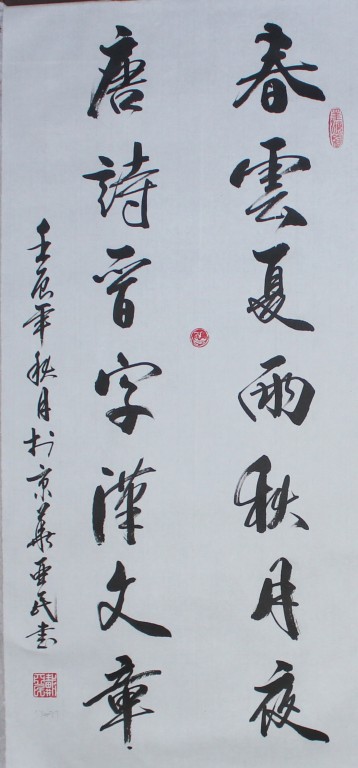 春雲夏雨秋月夜
唐詩晉字漢文章
壬辰年秋月於京華亞民書